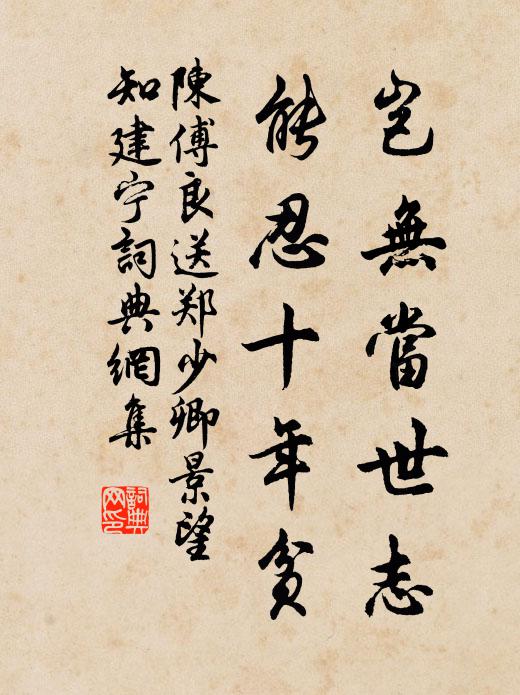 岂無當世志
能忍十年貧
陳傅良送郑少卿景望
知建宁詞典網集
詞典
网印